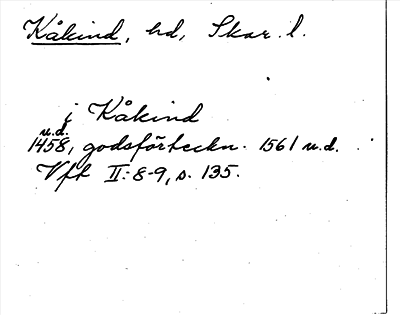 Kåkind, hd, Skar. l.
i Kåkind
u.d.
1458, godsförteckn. 1561 u.d.
Vft II: 8-9, s. 135.